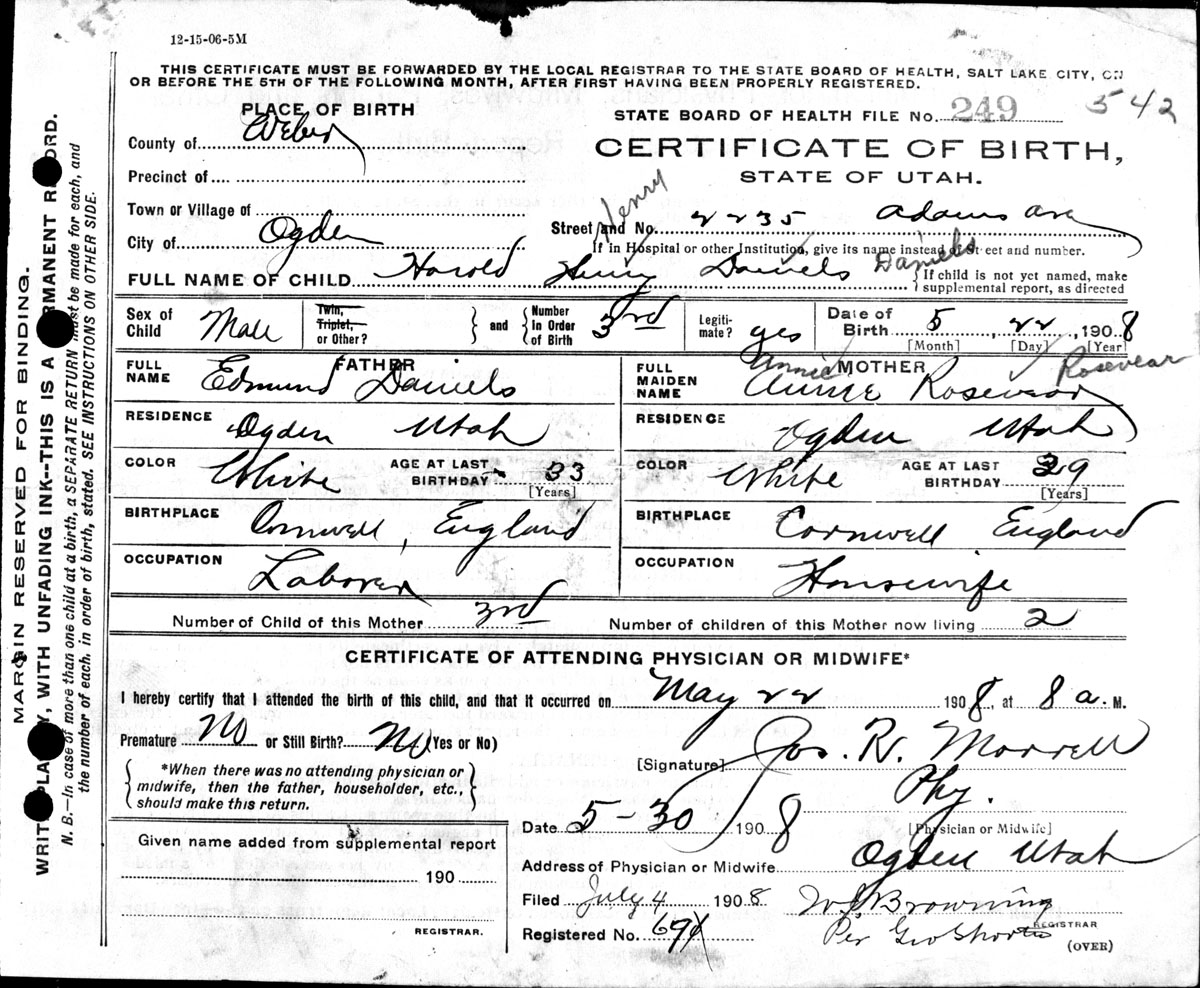 12-15-06-5M
THIS CERTIFICATE MUST BE FORWARDED BY THE LOCAL REGISTRAR TO THE STATE BOARD OF HEALTH, SALT LAKE CITY, ON
OR BEFORE THE 5TH OF THE FOLLOWING MONTH, AFTER FIRST HAVING BEEN PROPERLY REGISTERED.
PLACE OF BIRTH
STATE BOARD OF HEALTH FILE No. 249 542
County of Weber
CERTIFICATE OF BIRTH,
STATE OF UTAH.
Precinct of
Town or Village of
City of Ogden
Henry
Street and No. 2235 Adams Ave
If in Hospital or other Institution, give its name instead of Street and number.
Daniels
FULL NAME OF CHILD Harold Henry Daniels
If child is not yet named, make
supplemental report, as directed
Sex of Child Male
Twin, Triplet, or Other? and Number In Order of Birth 3rd
Legitimate? yes
Date of Birth 5 22, 1908
[Month] [Day] [Year
FATHER
FULL NAME Edmund Daniels
RESIDENCE Ogden Utah
COLOR White AGE AT LAST BIRTHDAY 33
[Years]
BIRTHPLACE Cornwell, England
OCCUPATION Laborer
MOTHER
Annie Rosevear
FULL MAIDEN NAME Annie Rosevear
RESIDENCE Ogden Utah
COLOR White AGE AT LAST BIRTHDAY 39
[Years]
BIRTHPLACE Cornwell England
OCCUPATION Housewife
Number of Child of this Mother 3rd Number of children of this Mother now living 2
CERTIFICATE OF ATTENDING PHYSICIAN OR MIDWIFE*
I hereby certify that I attended the birth of this child, and that it occurred on May 22 1908, at 8 a. M.
Premature No or Still Birth? No (Yes or No)
[Signature] Jos. R. Morrell
*When there was no attending physician or
midwife, then the father, householder, etc.,
should make this return.
Phy.
[Physician or Midwife]
Date 5-30 1908
Given name added from supplemental report
190
REGISTRAR.
Address of Physician or Midwife Ogden Utah
Filed July 4 1908 Browning
REGISTRAR
Registered No. Per Geo Shorten
(OVER)
MARGIN RESERVED FOR BINDING.
WRITE PLAINLY, WITH UNFADING INK--THIS IS A PERMANENT RECORD.
N. B.—In case of more than one child at a birth, a SEPARATE RETURN must be made for each, and
the number of each, in order of birth, stated. SEE INSTRUCTIONS ON OTHER SIDE.